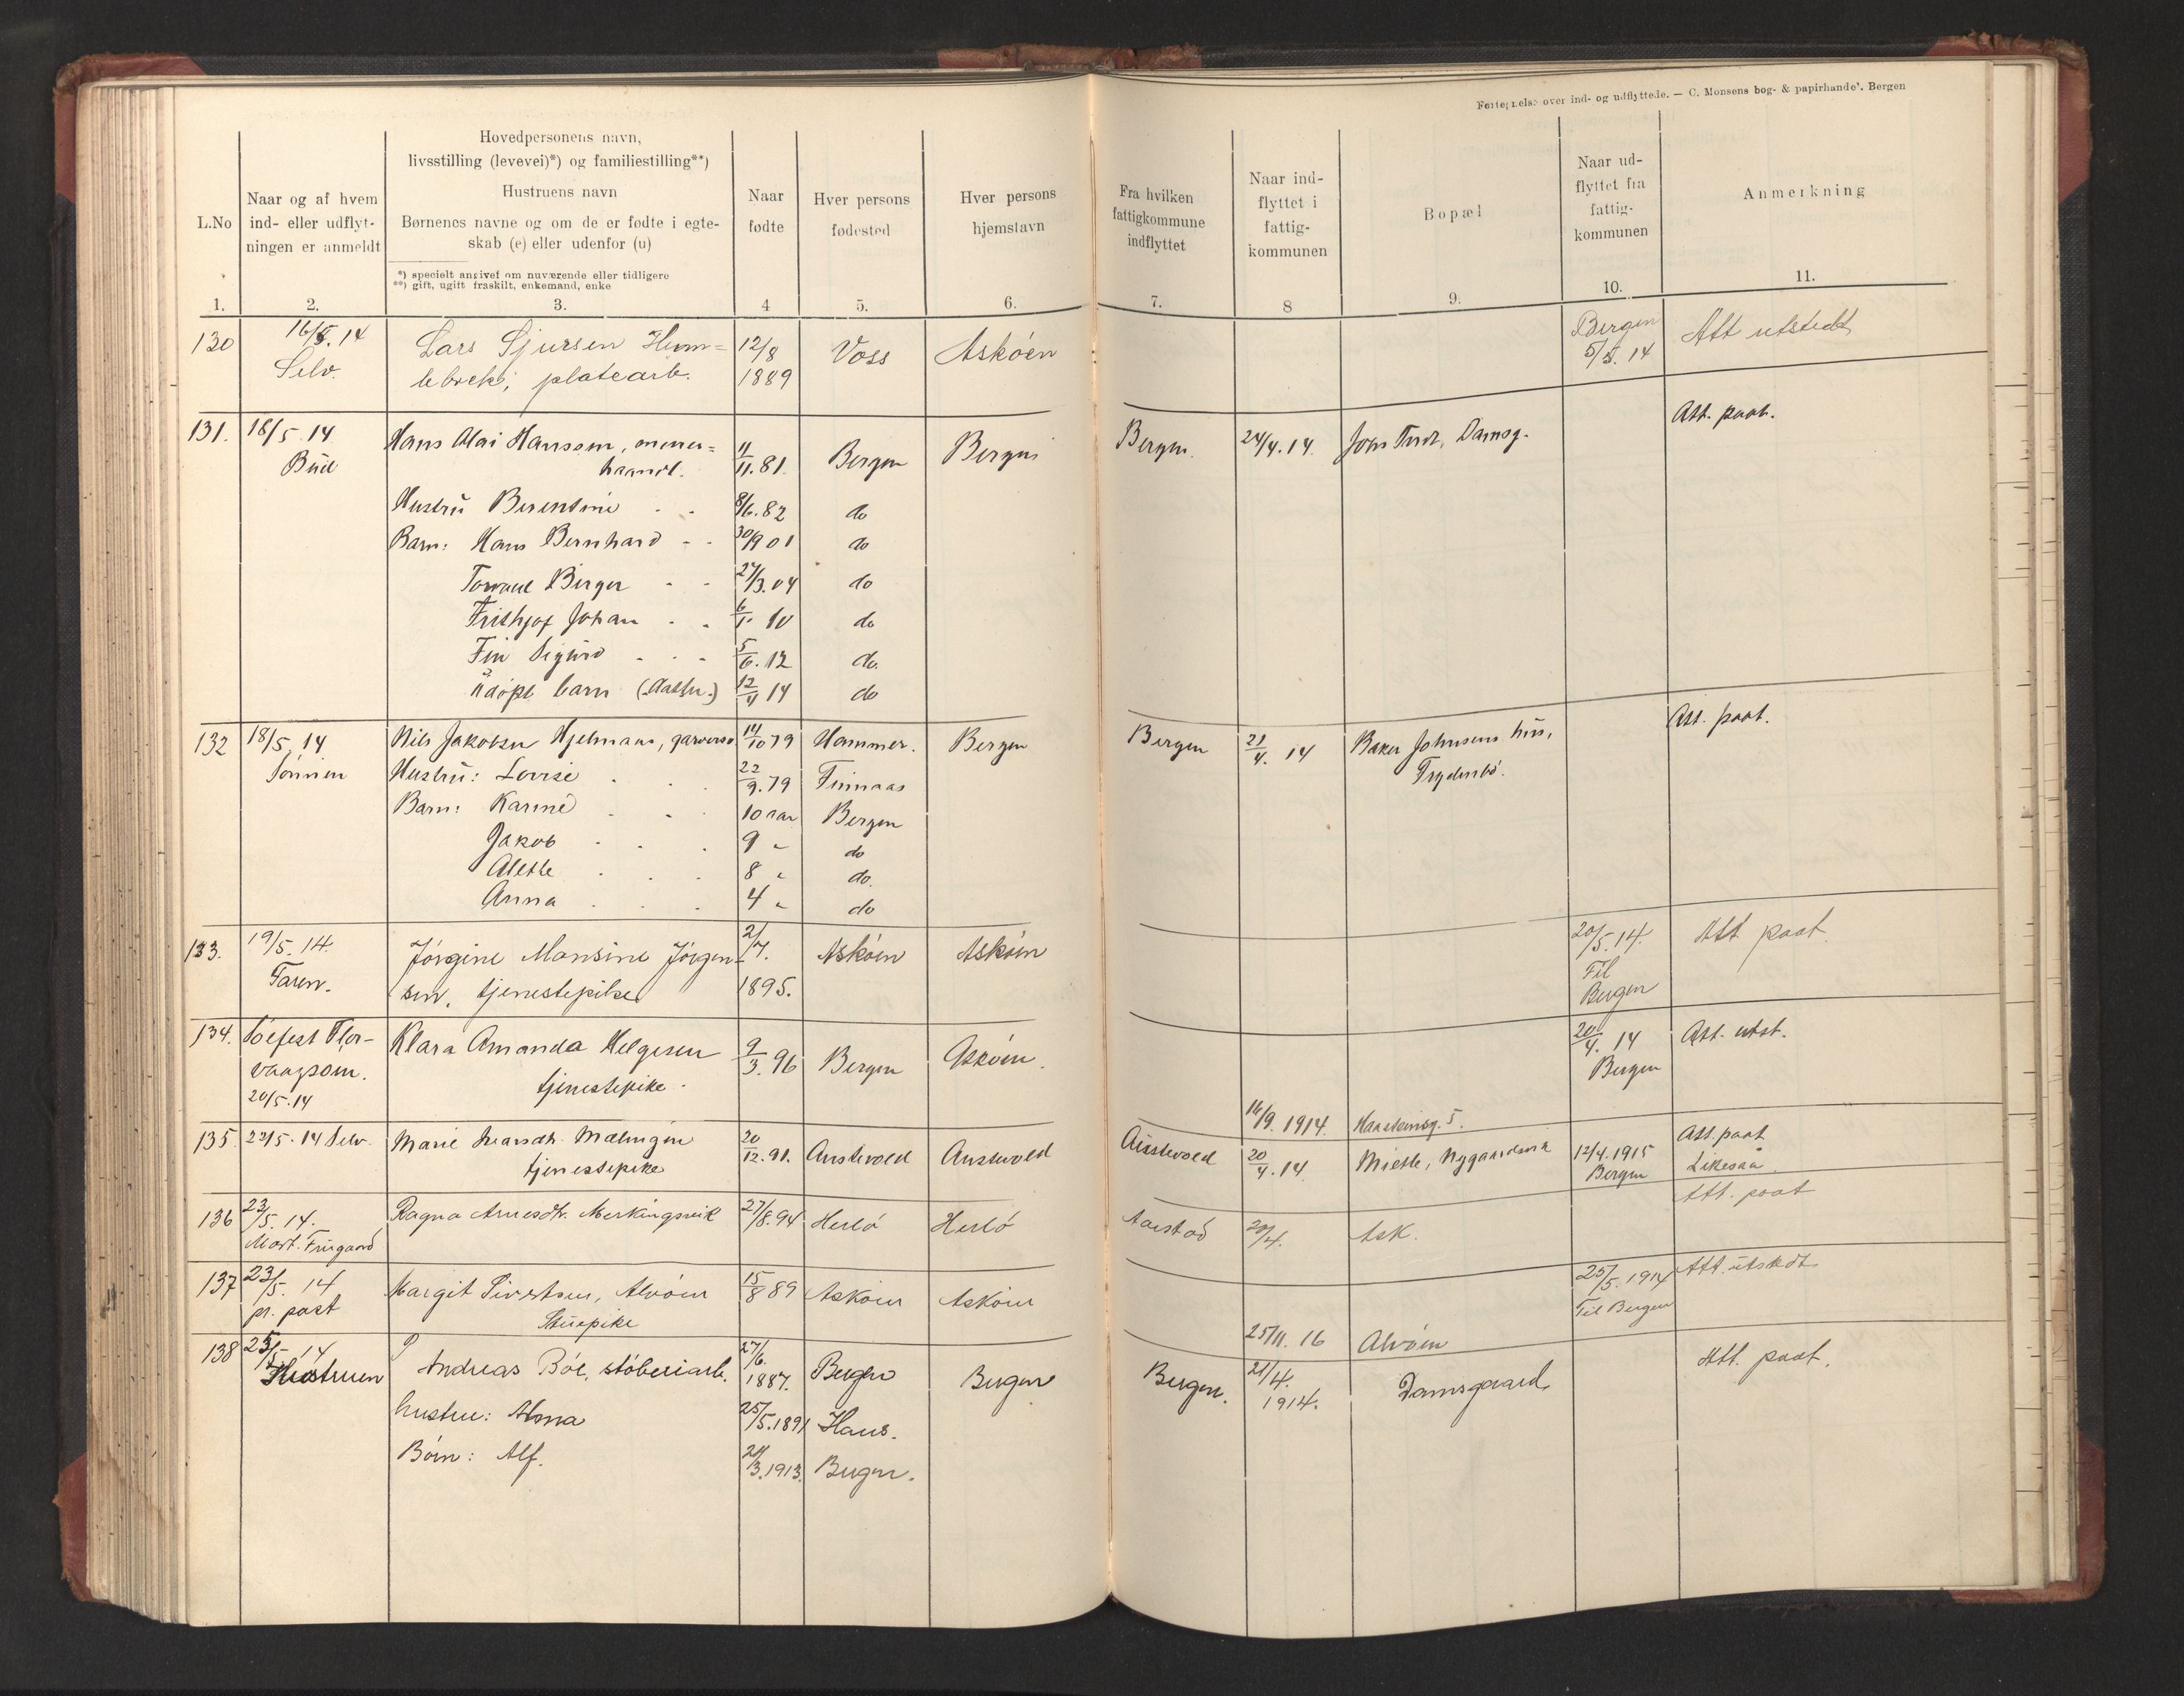 Fortegnelse over ind- og udflyttede. — C. Monsens bog- & papirhandel. Bergen
L.No
1.
Naar og af hvem
ind- eller udflyt-
ningen er anmeldt
2.
Hovedpersonens navn,
livsstilling (levevei)*) og familiestilling**)
Hustruens navn
Børnenes navne og om de er fødte i egte-
skab (e) eller udenfor (u)
*) specielt angivet om nuværende eller tidligere
**) gift, ugift fraskilt, enkemand, enke
3.
Naar
fødte
4
Hver persons
fødested
5.
Hver persons
hjemstavn
6.
Fra hvilken
fattigkommune
indflyttet
7.
Naar ind-
flyttet i
fattig-
kommunen
8
Bopæl
9.
Naar ud-
flyttet fra
fattig-
kommunen
10.
Anmerkning
11.
130 16/5. 14 Lars Sjursen Hum= 12/8 Voss Askøen Bergen Att utstedt
Selv. lebrek, platearb. 1889 5/5. 14
131. 18/5. 14 Hans Olai Hanssen, 11/11. 81. Bergen Bergen Bergen. 24/4. 14. Johs Damsg. Att. paat.
Bud haandl.
Hustru Berentine 8/6. 82 do
Barn: Hans Bernhard 30/9 01 do
Torvald Birger 27/3. 04 do
Frithjof Johan 6/1. 10 do
Fin Sigurd 5/6. 12 do.
Udøpt barn (datter) 12/4 14 do
132 18/5. 14 Nils Jakobsen Hjelmaas, 14/10 79 Hammer. Bergen Bergen 21/4. 14 Baker Johnsens hus, Att. paat.
Sønnen Hustru: Lovise 22/9. 79 Finnaas Frydenbø.
Barn: Karine 10 aar Bergen
Jakob 9 " do
Alette 8 " do.
Anna 4 " do
133. 19/5. 14. Jørgine Monsine Jørgen- 2/7. Askøen Askøen 20/5. 14. Att paat.
Faren. sen. tjenestepike 1895. Til
Bergen
134. Soefest Flor- Klara Amanda Helgesen 9/3. 96 Bergen Askøen. 20/4. 14 Att. utst.
vaagsøen. tjenestepike. Bergen
20/5. 14
16/9. 1914. Haasteinsg. 5.
135. 22/5. 14 Selv. Marie Malmgen 20/12. 91. Austevold Austevold Austevold 20/4. 14. Miette, 12/4. 1915 Att. paat
tjenestepike Bergen Likesaa.
136 23/5. 14. Ragna Arnesdtr. Merkingsvik 27/8. 94 Herlø Herlø Aarstad 20/4. Ask. Att. paat
Mart. Friisgaard
137 23/5. 14 Margit Sivertsen, Alvøen 15/8 89 Askøen Askøen 25/5. 1914 Att. utstedt
pr. post Stuepike Til Bergen
25/11. 16 Alvøen
138 25/5. 14 Andreas Bøe, støberiarb. 27/6. Bergen Bergen Bergen. 21/4. Damsgaard. Att. paat.
Hustruen 1887. 1914.
hustru: Alma 25/5. 1891 Haus.
Børn: Alf. 21/3. 1913. Bergen.